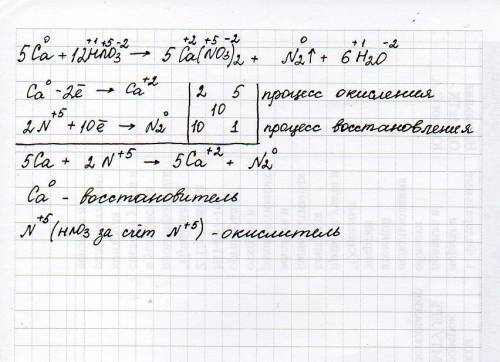 5Ca⁰ + 12H⁺¹N⁺⁵O₃⁻² → 5Ca⁺²(N⁺⁵O₃⁻²)₂ + N₂⁰↑ + 6H₂⁺¹O⁻²
Ca⁰ - 2ē → Ca⁺² | 2 | 5 | процесс окисления
10
2N⁺⁵ + 10ē → N₂⁰ | 10 | 1 | процесс восстановления
5Ca + 2N⁺⁵ → 5Ca⁺² + N₂⁰
Ca⁰ - восстановитель
N⁺⁵ (HNO₃ за счёт N⁺⁵) - окислитель